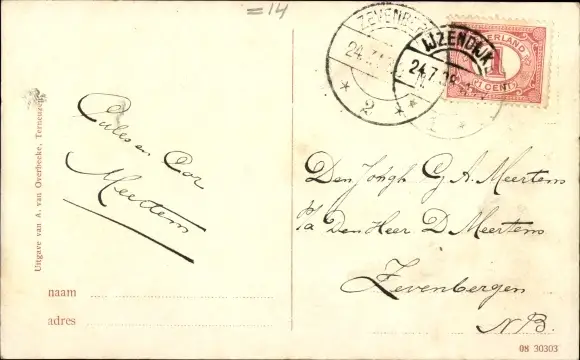 =14
ZEVENBE
24.7
2
IJZENDIJKE
24.7.18
NEDERLAND
1
CENT
Uitgave van A. van Overbeeke, Terneuzen
Cales en Cor
Meertens
naam
adres
Den Jongh G A. Meertens
P/a Den Heer D Meertens
Zevenbergen
N B.
08 30303